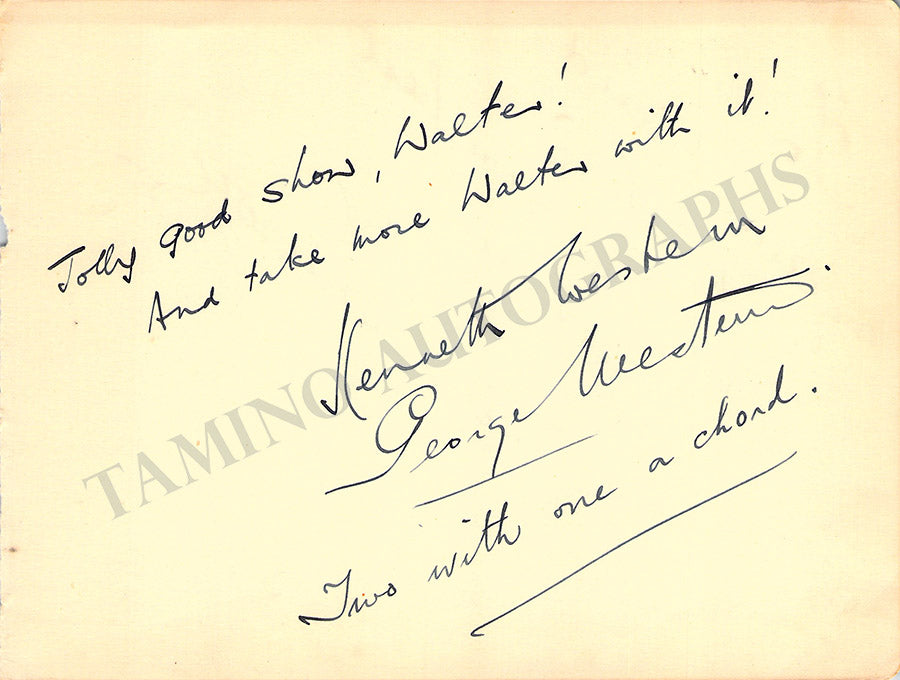 Jolly good show, Walter!
And take more Walter with it!
Kenneth Western
George Western.
Two with one a chord.
TAMINO AUTOGRAPHS